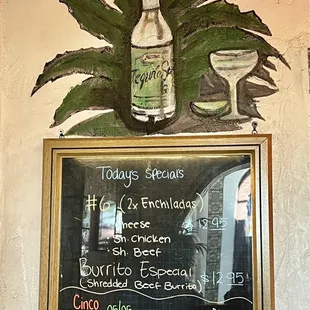 Tequila
Todays Specials
#6 (2x Enchiladas)
Cheese $18.95
• Sh. Chicken
• Sh. Beef
Burrito Especial
(Shredded Beef Burrito) $12.95
Cinco 05/05